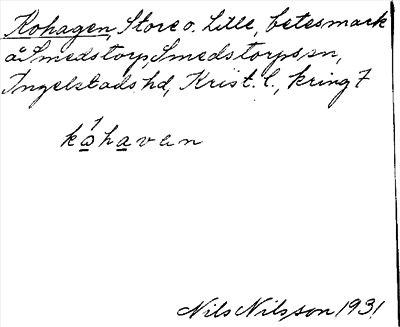 Kohagen, Store o. Lille, betesmark
å Smedstorp, Smedstorps sn,
Ingelstads hd, Krist. l., kring 7
kóhavan
Nils Nilsson 1931